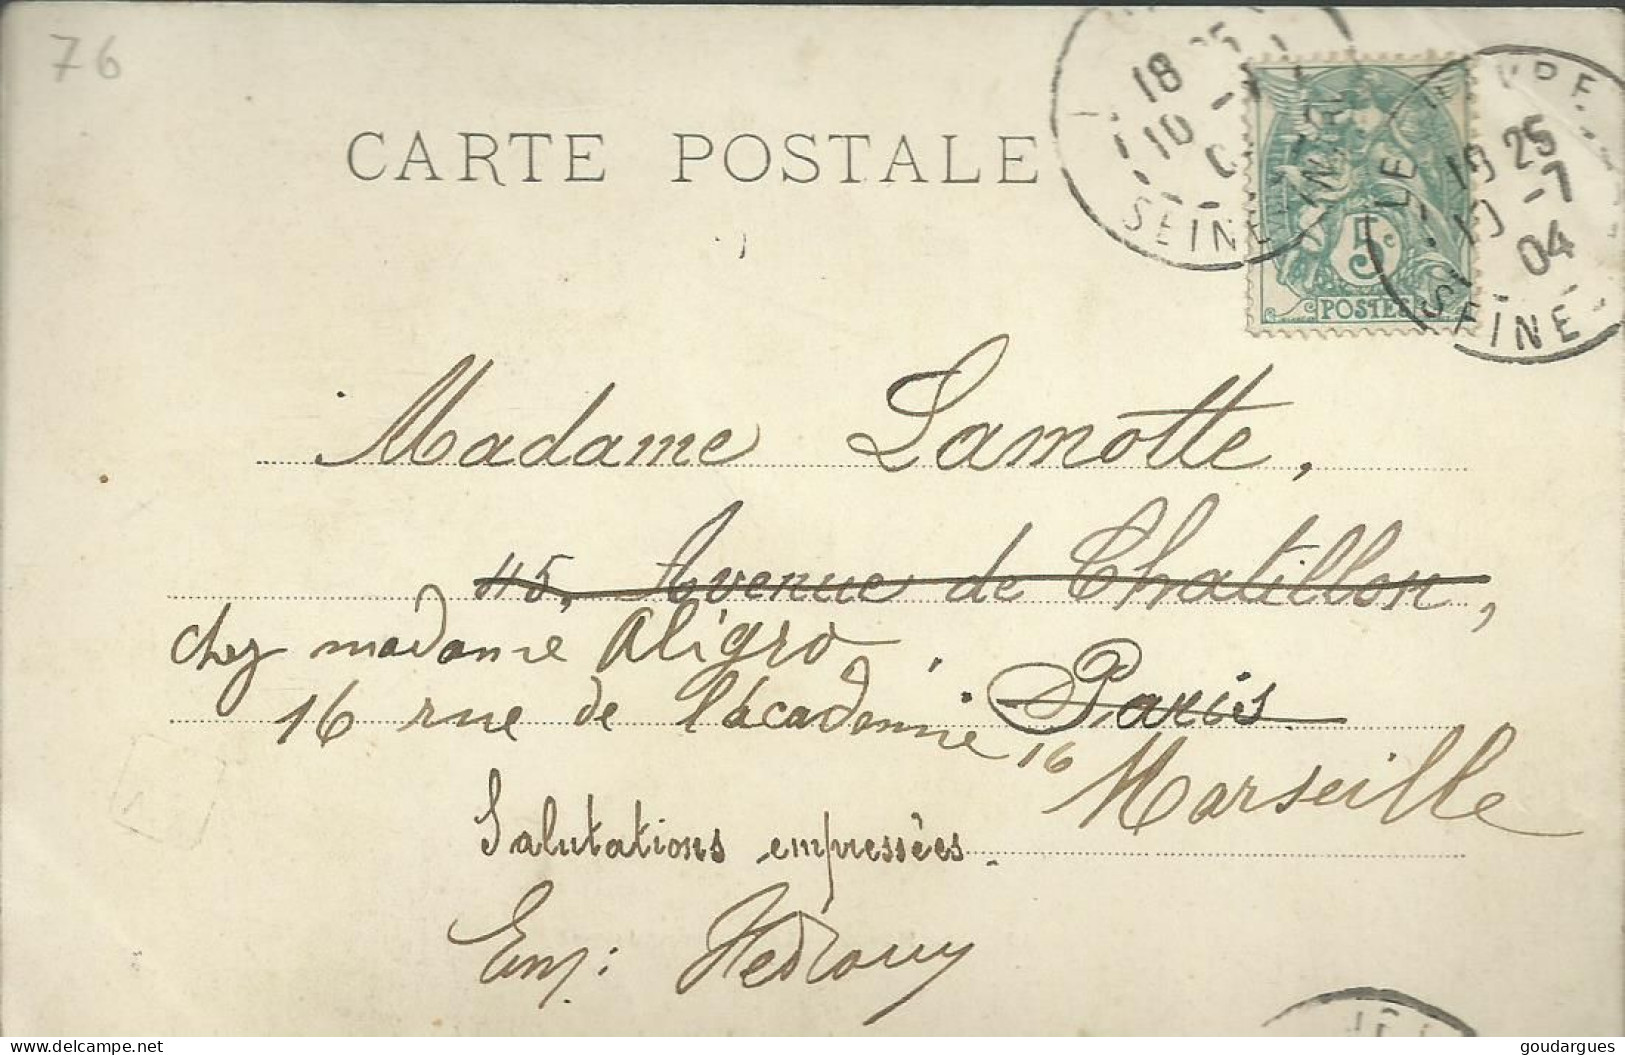 76
CARTE POSTALE
18 25
10
SEINE
LE HAVRE
18 25
10 -7
04
SEINE-
5c
POSTES
Madame Lamotte,
115, Avenue de Chatillon,
chez madame Aligro
16 rue de l'académie 16 Paris
Marseille
Salutations empressées.
Em: Hedrouy
delcampe.net
goudargues